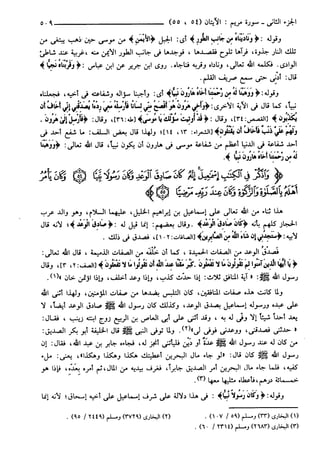 الجزء الثاني - سورة مريم : الآيتان (٥٤ ، ٥٥) ٥٠٩
وقوله : ﴿وَنَادَيْنَاهُ مِن جَانِبِ الطُّورِ﴾ أي: الجبل ﴿الْأَيْمَنِ﴾ من موسى حين ذهب يبتغي من
تلك النار جذوة، فرآها تلوح فقصدها ، فوجدها في جانب الطور الأيمن منه ، غربية عند شاطئ
الوادي. فكلمه الله تعالى، وناداه وقربه فناجاه. روى ابن جرير عن ابن عباس : ﴿وَقَرَّبْنَاهُ نَجِيًّا﴾
قال: أدني حتى سمع صريف القلم.
وقوله: ﴿وَوَهَبْنَا لَهُ مِن رَّحْمَتِنَا أَخَاهُ هَارُونَ نَبِيًّا﴾ أي: وأجبنا سؤاله وشفاعته في أخيه، فجعلناه
نبياً، كما قال في الآية الأخرى: ﴿وَأَخِي هَارُونُ هُوَ أَفْصَحُ مِنِّي لِسَانًا فَأَرْسِلْهُ مَعِيَ رِدْءًا يُصَدِّقُنِي إِنِّي أَخَافُ أَن
يُكَذِّبُونِ﴾ (القصص:٣٤)، وقال: ﴿قَدْ أُوتِيتَ سُؤْلَكَ يَا مُوسَى﴾ (طه:٣٦)، وقال: ﴿فَأَرْسِلْ إِلَى هَارُونَ .
وَلَهُمْ عَلَيَّ ذَنبٌ فَأَخَافُ أَن يَقْتُلُونِ﴾ (الشعراء: ١٣، ١٤)؛ ولهذا قال بعض السلف: ما شفع أحد في
أحد شفاعة في الدنيا أعظم من شفاعة موسى في هارون أن يكون نبياً، قال الله تعالى: ﴿وَوَهَبْنَا
لَهُ مِن رَّحْمَتِنَا أَخَاهُ هَارُونَ نَبِيًّا﴾ .
﴿وَاذْكُرْ فِي الْكِتَابِ إِسْمَاعِيلَ إِنَّهُ كَانَ صَادِقَ الْوَعْدِ وَكَانَ رَسُولًا نَّبِيًّا ۝ وَكَانَ يَأْمُرُ
أَهْلَهُ بِالصَّلَاةِ وَالزَّكَاةِ وَكَانَ عِندَ رَبِّهِ مَرْضِيًّا ۝﴾
هذا ثناء من الله تعالى على إسماعيل بن إبراهيم الخليل، عليهما السلام، وهو والد عرب
الحجاز كلهم بأنه ﴿كَانَ صَادِقَ الْوَعْدِ﴾. وقال بعضهم: إنما قيل له : ﴿صَادِقَ الْوَعْدِ﴾؛ لأنه قال
لأبيه: ﴿سَتَجِدُنِي إِن شَاءَ اللَّهُ مِنَ الصَّابِرِينَ﴾ (الصافات:١٠٢)، فصدق في ذلك .
فصدق الوعد من الصفات الحميدة ، كما أن خلفه من الصفات الذميمة ، قال الله تعالى:
﴿يَا أَيُّهَا الَّذِينَ آمَنُوا لِمَ تَقُولُونَ مَا لَا تَفْعَلُونَ . كَبُرَ مَقْتًا عِندَ اللَّهِ أَن تَقُولُوا مَا لَا تَفْعَلُونَ﴾ (الصف:٢، ٣)، وقال
رسول الله ﷺ : « آية المنافق ثلاث: إذا حدث كذب، وإذا وعد أخلف، وإذا اؤتمن خان » (١).
ولما كانت هذه صفات المنافقين، كان التلبس بضدها من صفات المؤمنين، ولهذا أثنى الله
على عبده ورسوله إسماعيل بصدق الوعد، وكذلك كان رسول الله ﷺ صادق الوعد أيضاً، لا
يعد أحداً شيئاً إلا وفَّى له به ، وقد أثنى على أبي العاص بن الربيع زوج ابنته زينب ، فقال:
« حدثني فصدقني، ووعدني فوفى لي »(٢). ولما توفي النبي ﷺ قال الخليفة أبو بكر الصديق:
من كان له عند رسول الله ﷺ عدة أو دين فليأتني أنجز له، فجاءه جابر بن عبد الله، فقال: إن
رسول الله ﷺ كان قال: « لو جاء مال البحرين أعطيتك هكذا وهكذا وهكذا»، يعني: ملء
كفيه، فلما جاء مال البحرين أمر الصديق جابراً، فغرف بيديه من المال، ثم أمره بعده، فإذا هو
خمسمائة درهم، فأعطاه مثليها معها (٣).
وقوله: ﴿وَكَانَ رَسُولًا نَّبِيًّا﴾ : في هذا دلالة على شرف إسماعيل على أخيه إسحاق؛ لأنه إنما
(١) البخاري (٣٣) ومسلم (٥٩ / ١٠٧) . (٢) البخاري (٣٧٢٩) ومسلم (٢٤٤٩ / ٩٥) .
(٣) البخاري (٢٦٨٣) ومسلم (٢٣١٤ / ٦٠) .